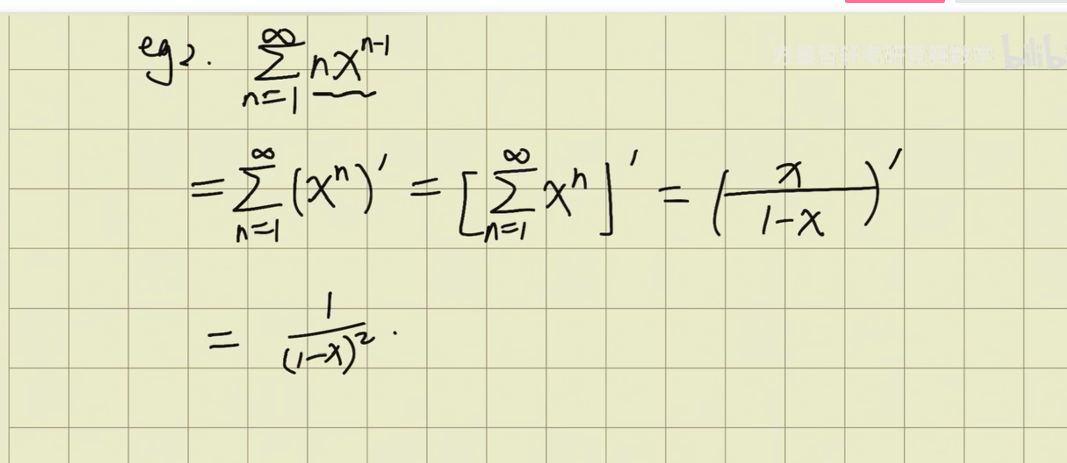 eg2. ∑_{n=1}^{∞} nx^{n-1}
= ∑_{n=1}^{∞} (x^n)' = [∑_{n=1}^{∞} x^n]' = (x/(1-x))'
= 1/(1-x)^2 .